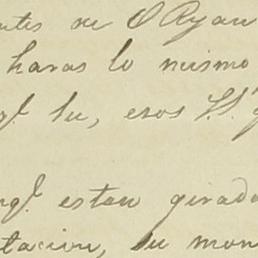 ntes de O'Ryan
haras lo mismo
qe. su, esos SS.
nqe. estan girado
tacion, su mon